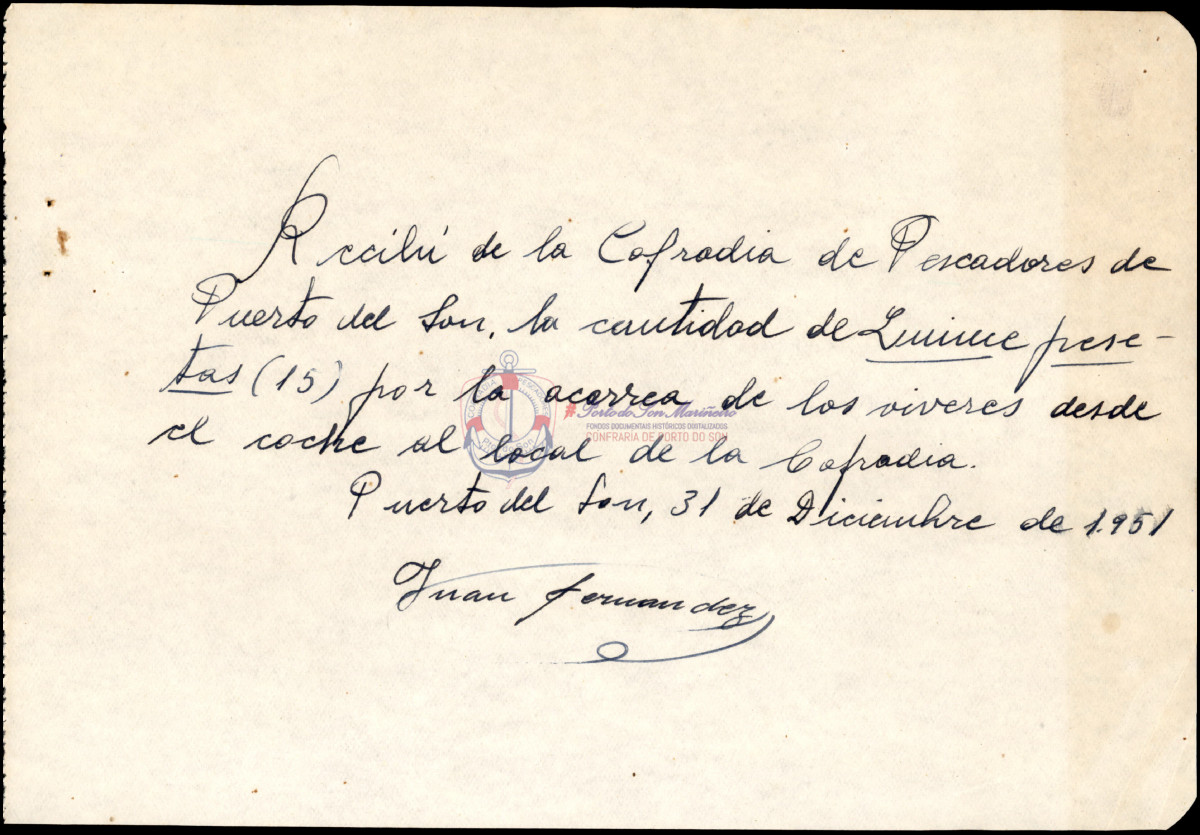 Recibí de la Cofradia de Pescadores de
Puerto del Son, la cantidad de Quince pese-
tas (15) por la acarrea de los viveres desde
el coche al local de la Cofradia.
Puerto del Son, 31 de Diciembre de 1.951
Juan Fernandez
#Porto do Son Mariñeiro
FONDOS DOCUMENTAIS HISTÓRICOS DIXITALIZADOS
CONFRARIA DE PORTO DO SON